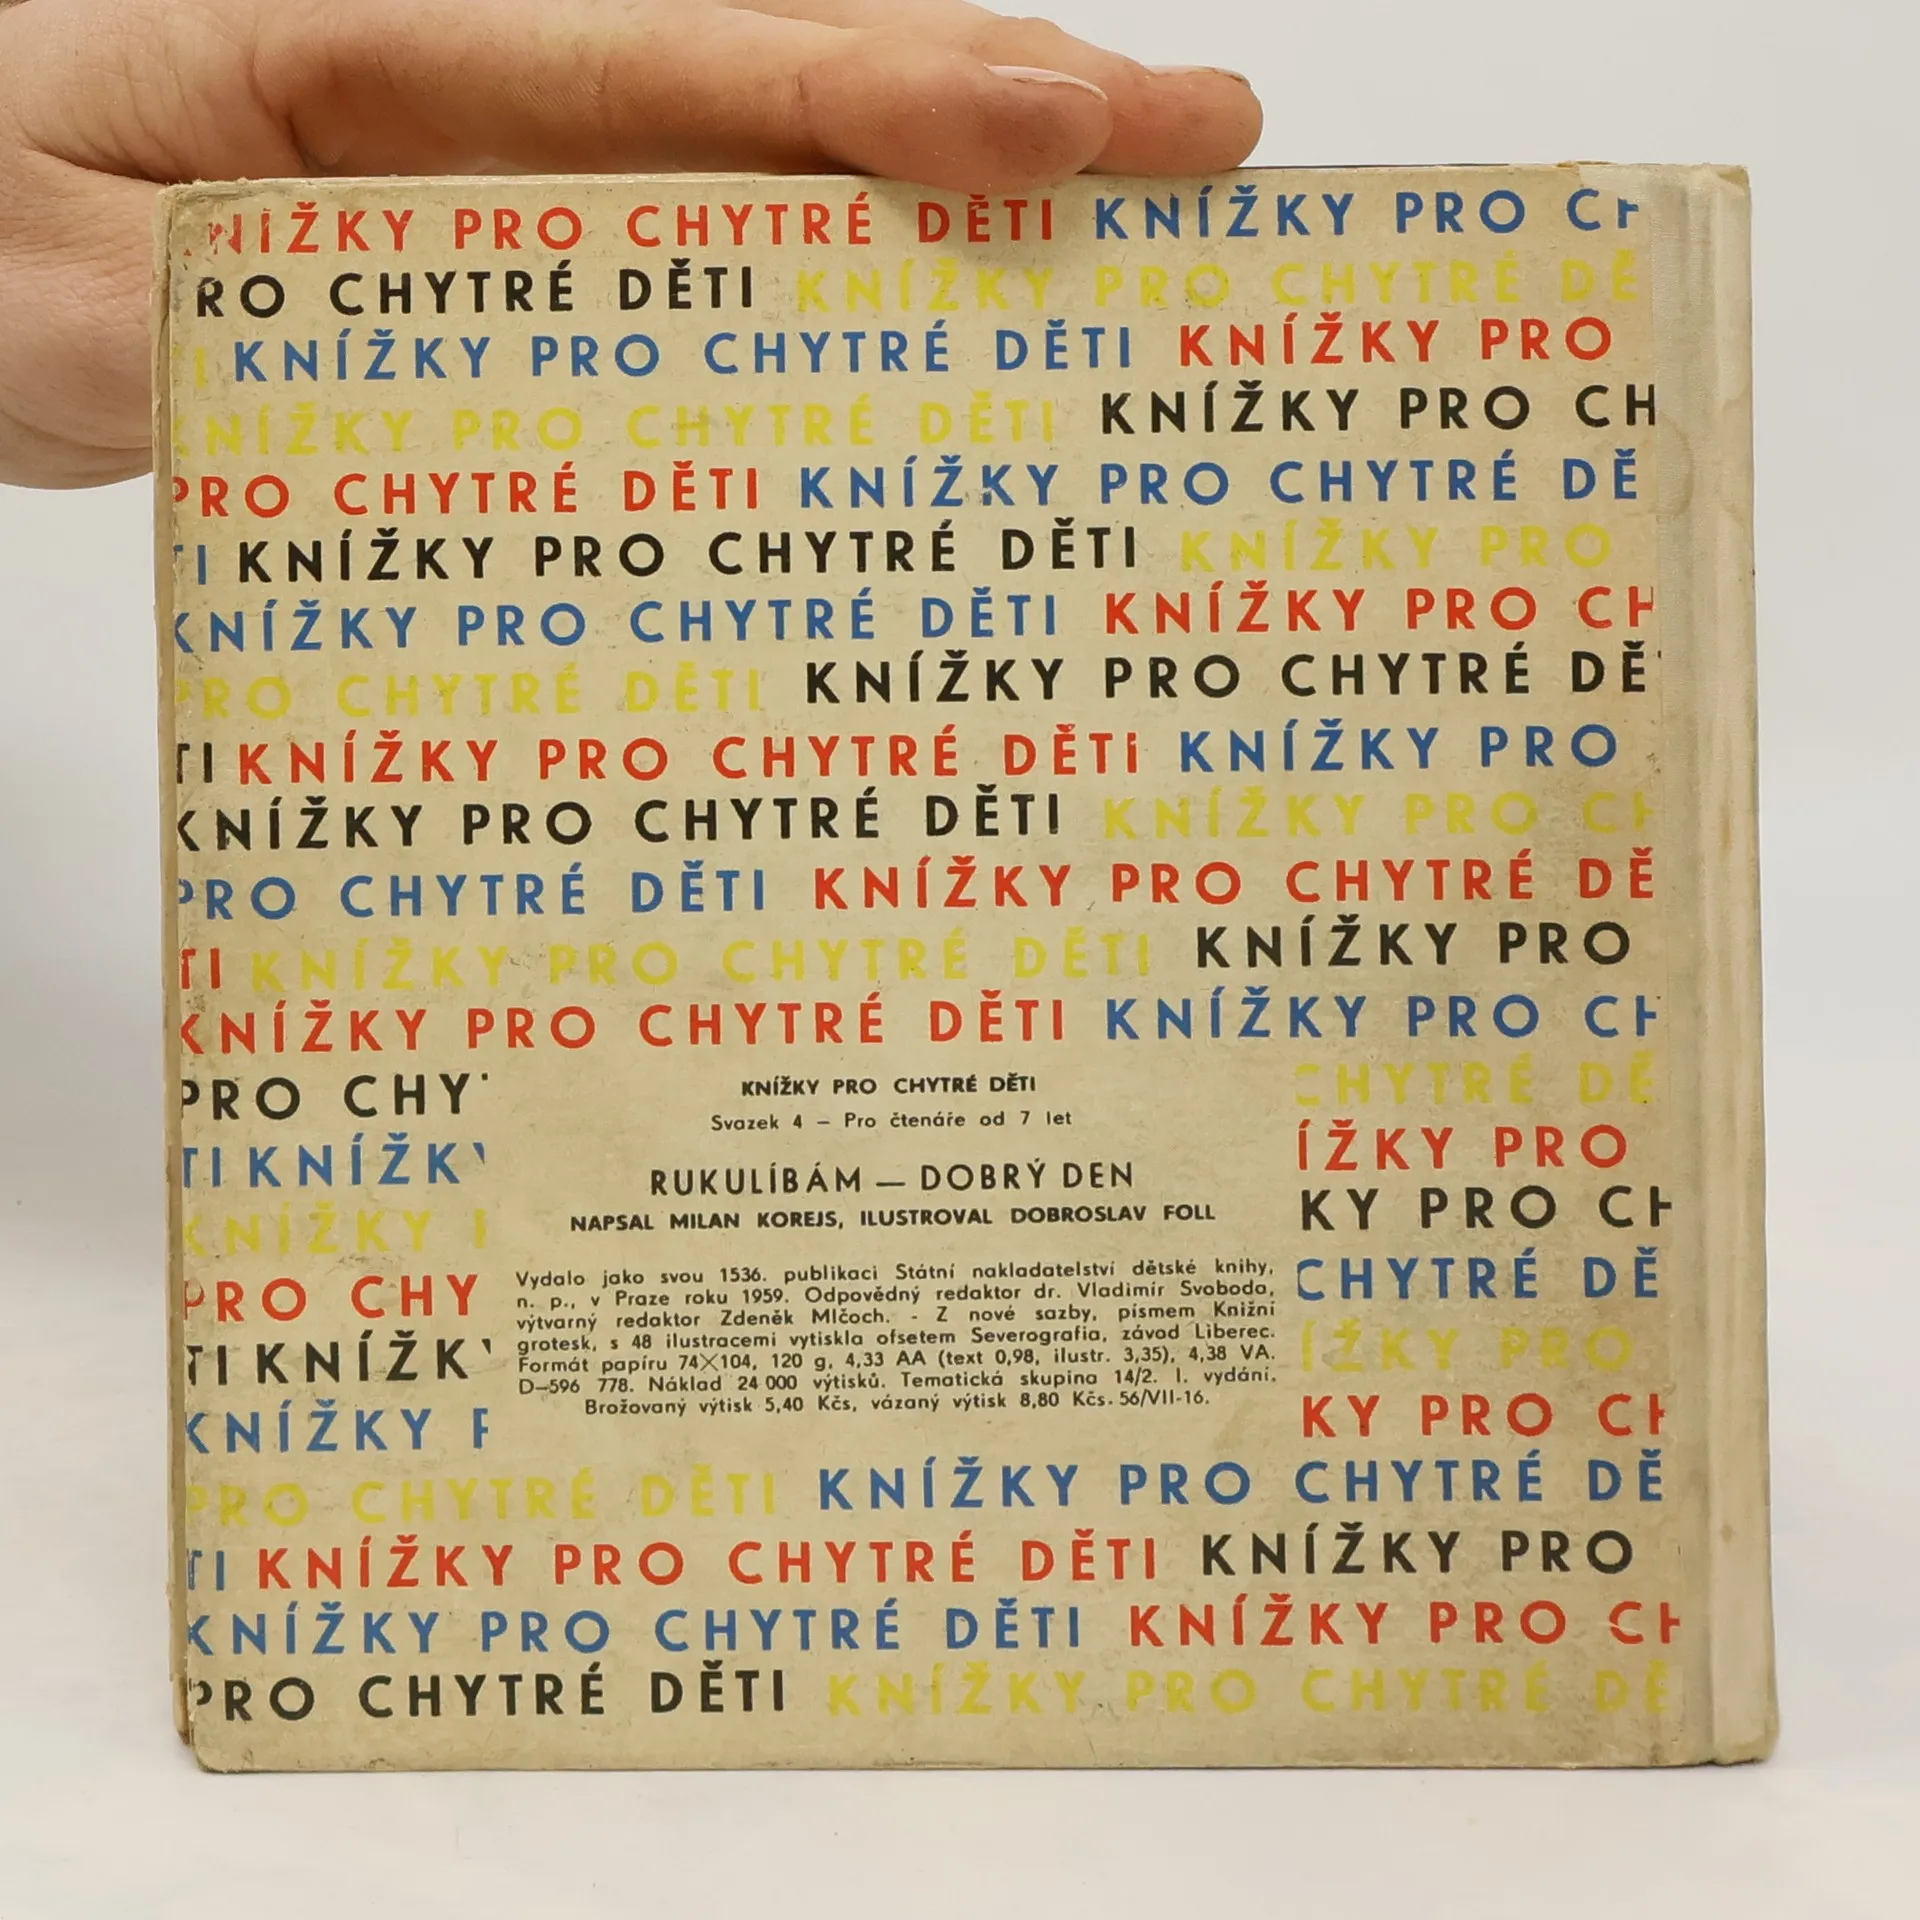 NÍŽKY PRO CHYTRÉ DĚTI KNÍŽKY PRO CH
RO CHYTRÉ DĚTI KNÍŽKY PRO CHYTRÉ DĚ
TI KNÍŽKY PRO CHYTRÉ DĚTI KNÍŽKY PRO
KNÍŽKY PRO CHYTRÉ DĚTI KNÍŽKY PRO CH
PRO CHYTRÉ DĚTI KNÍŽKY PRO CHYTRÉ DĚ
TI KNÍŽKY PRO CHYTRÉ DĚTI KNÍŽKY PRO
KNÍŽKY PRO CHYTRÉ DĚTI KNÍŽKY PRO CH
PRO CHYTRÉ DĚTI KNÍŽKY PRO CHYTRÉ DĚ
TI KNÍŽKY PRO CHYTRÉ DĚTI KNÍŽKY PRO
KNÍŽKY PRO CHYTRÉ DĚTI KNÍŽKY PRO CH
PRO CHYTRÉ DĚTI KNÍŽKY PRO CHYTRÉ DĚ
TI KNÍŽKY PRO CHYTRÉ DĚTI KNÍŽKY PRO
KNÍŽKY PRO CHYTRÉ DĚTI KNÍŽKY PRO CH
PRO CHY CHYTRÉ DĚ
TI KNÍŽK ÍŽKY PRO
KNÍŽKY P KY PRO CH
PRO CHY CHYTRÉ DĚ
TI KNÍŽK ÍŽKY PRO
KNÍŽKY P KY PRO CH
KNÍŽKY PRO CHYTRÉ DĚTI
Svazek 4 – Pro čtenáře od 7 let
RUKULÍBÁM — DOBRÝ DEN
NAPSAL MILAN KOREJS, ILUSTROVAL DOBROSLAV FOLL
Vydalo jako svou 1536. publikaci Státní nakladatelství dětské knihy,
n. p., v Praze roku 1959. Odpovědný redaktor dr. Vladimír Svoboda,
výtvarný redaktor Zdeněk Mlčoch. - Z nové sazby, písmem Knižní
grotesk, s 48 ilustracemi vytiskla ofsetem Severografia, závod Liberec.
Formát papíru 74×104, 120 g, 4,33 AA (text 0,98, ilustr. 3,35), 4,38 VA.
D—596 778. Náklad 24 000 výtisků. Tematická skupina 14/2. I. vydání.
Brožovaný výtisk 5,40 Kčs, vázaný výtisk 8,80 Kčs. 56/VII-16.
PRO CHYTRÉ DĚTI KNÍŽKY PRO CHYTRÉ DĚ
TI KNÍŽKY PRO CHYTRÉ DĚTI KNÍŽKY PRO
KNÍŽKY PRO CHYTRÉ DĚTI KNÍŽKY PRO CH
PRO CHYTRÉ DĚTI KNÍŽKY PRO CHYTRÉ DĚ